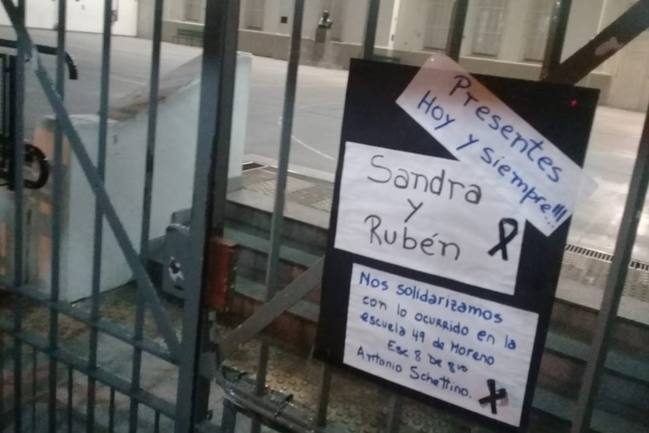 Presentes
Hoy y siempre!!!
Sandra
y
Rubén
Nos solidarizamos
con lo ocurrido en la
escuela 49 de Moreno
Esc 8 DE 8vo
Antonio Schettino.